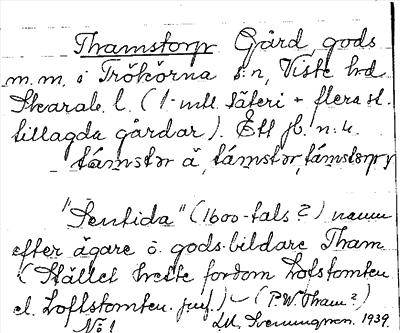 Thamstorp Gård, gods
m.m. i Trökörna s:n, Viste hd
Skarab. l. (1 mtl. säteri + flera st.
tillagda gårdar). Ett jb. n:r.
támstər å, támstər, támstərp y
"Sentida" (1600-tals?) namn
efter ägare o. gods-bildare Tham
(Stället hette fordom Lofstomten
el. Loftstomten. juf.) (P.W. Tham?)
No 1 Lll, Svenungsson. 1939.